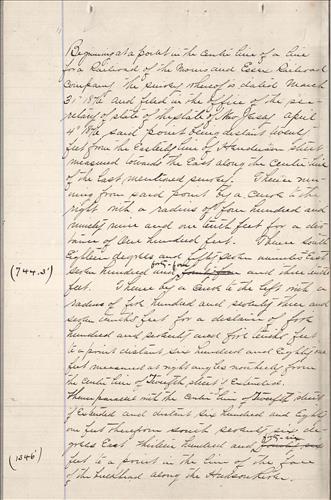 Beginning at a point in the centre line of a line
for a Railroad of the Morris and Essex Railroad
Company, the survey whereof is dated March
31st 1876 and filed in the office of the sec-
retary of state of the state of New Jersey April
4th 1876, said point being distant twenty
feet from the Easterly line of Henderson street
measured towards the East along the centre line
of the last mentioned survey. Thence run-
ning from said point by a curve to the
right with a radius of four hundred and
ninety nine and one tenth feet for a dis-
tance of One hundred feet. Thence South
Eighteen degrees and fifty seven minutes East
forty-four
(744.3') seven hundred and and three tenths
feet. Thence by a curve to the left with a
radius of five hundred and seventy three and
seven tenths feet for a distance of five
hundred and seventy and five tenths feet
to a point distant six hundred and Eighty one
feet measured at right angles northerly from
the centre line of Twelfth street if Extended.
Thence parallel with the centre line of Twelfth street
if Extended and distant six hundred and Eighty
one feet therefrom south seventy six de-
grees East, thirteen hundred and forty-six
(1346') feet to a point in the line of the face
of the Bulkhead along the Hudson River.